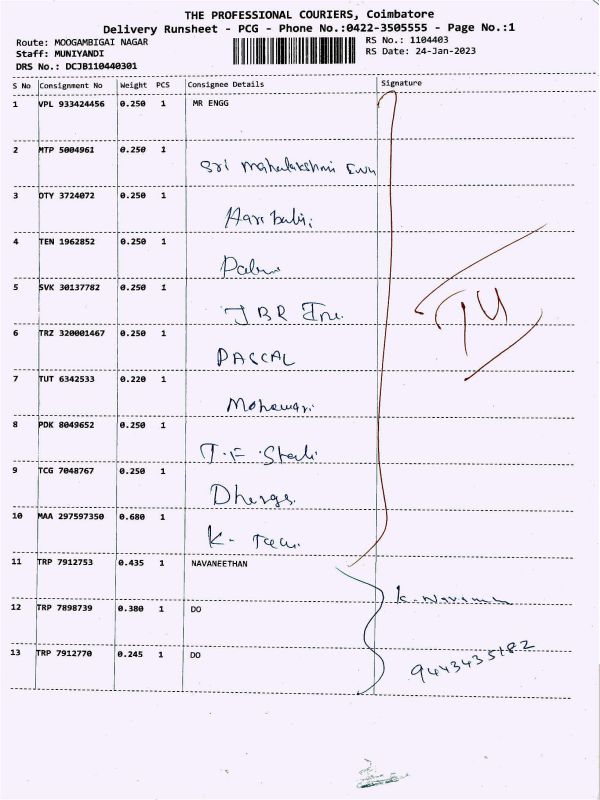 THE PROFESSIONAL COURIERS, Coimbatore
Delivery Runsheet - PCG - Phone No.:0422-3505555 - Page No.:1
Route: MOOGAMBIGAI NAGAR
Staff: MUNIYANDI
DRS No.: DCJB110440301
RS No.: 1104403
RS Date: 24-Jan-2023
S No Consignment No Weight PCS Consignee Details Signature
1 VPL 933424456 0.250 1 MR ENGG
2 MTP 5004961 0.250 1
Sri Mahalakshmi
3 DTY 3724072 0.250 1
4 TEN 1962852 0.250 1
5 SVK 30137782 0.250 1
JBR
6 TRZ 320001467 0.250 1
PASCAL
7 TUT 6342533 0.220 1
8 PDK 8049652 0.250 1
9 TCG 7048767 0.250 1
10 MAA 297597350 0.680 1
K-
11 TRP 7912753 0.435 1 NAVANEETHAN
12 TRP 7898739 0.380 1 DO
13 TRP 7912770 0.245 1 DO